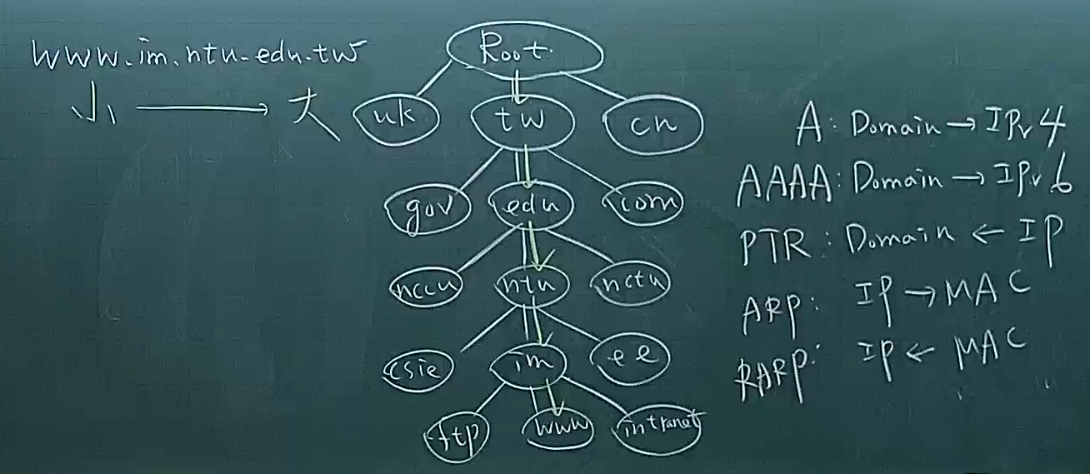 www.im.ntu.edu.tw
小 → 大
Root
uk tw cn
gov edu com
nccu ntu nctu
csie im ee
ftp www intranet
A: Domain → IPv4
AAAA: Domain → IPv6
PTR: Domain ← IP
ARP: IP → MAC
RARP: IP ← MAC